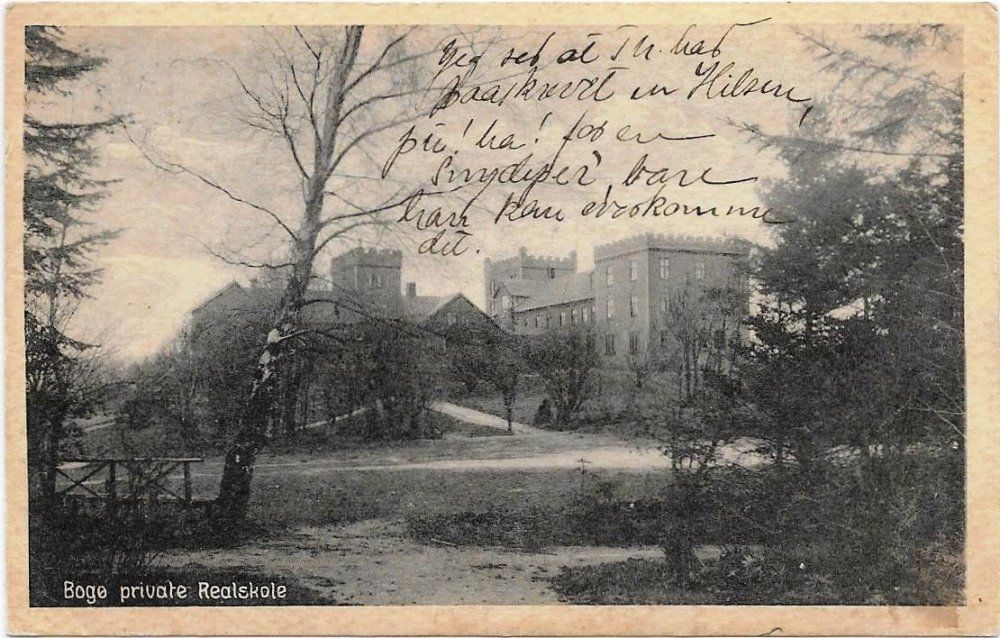 Jeg ser, at Th. har
paaskrevet en Hilsen,
piu! ha! for en
Snydeper, bare
han kan overkomme
det.
Bogø private Realskole